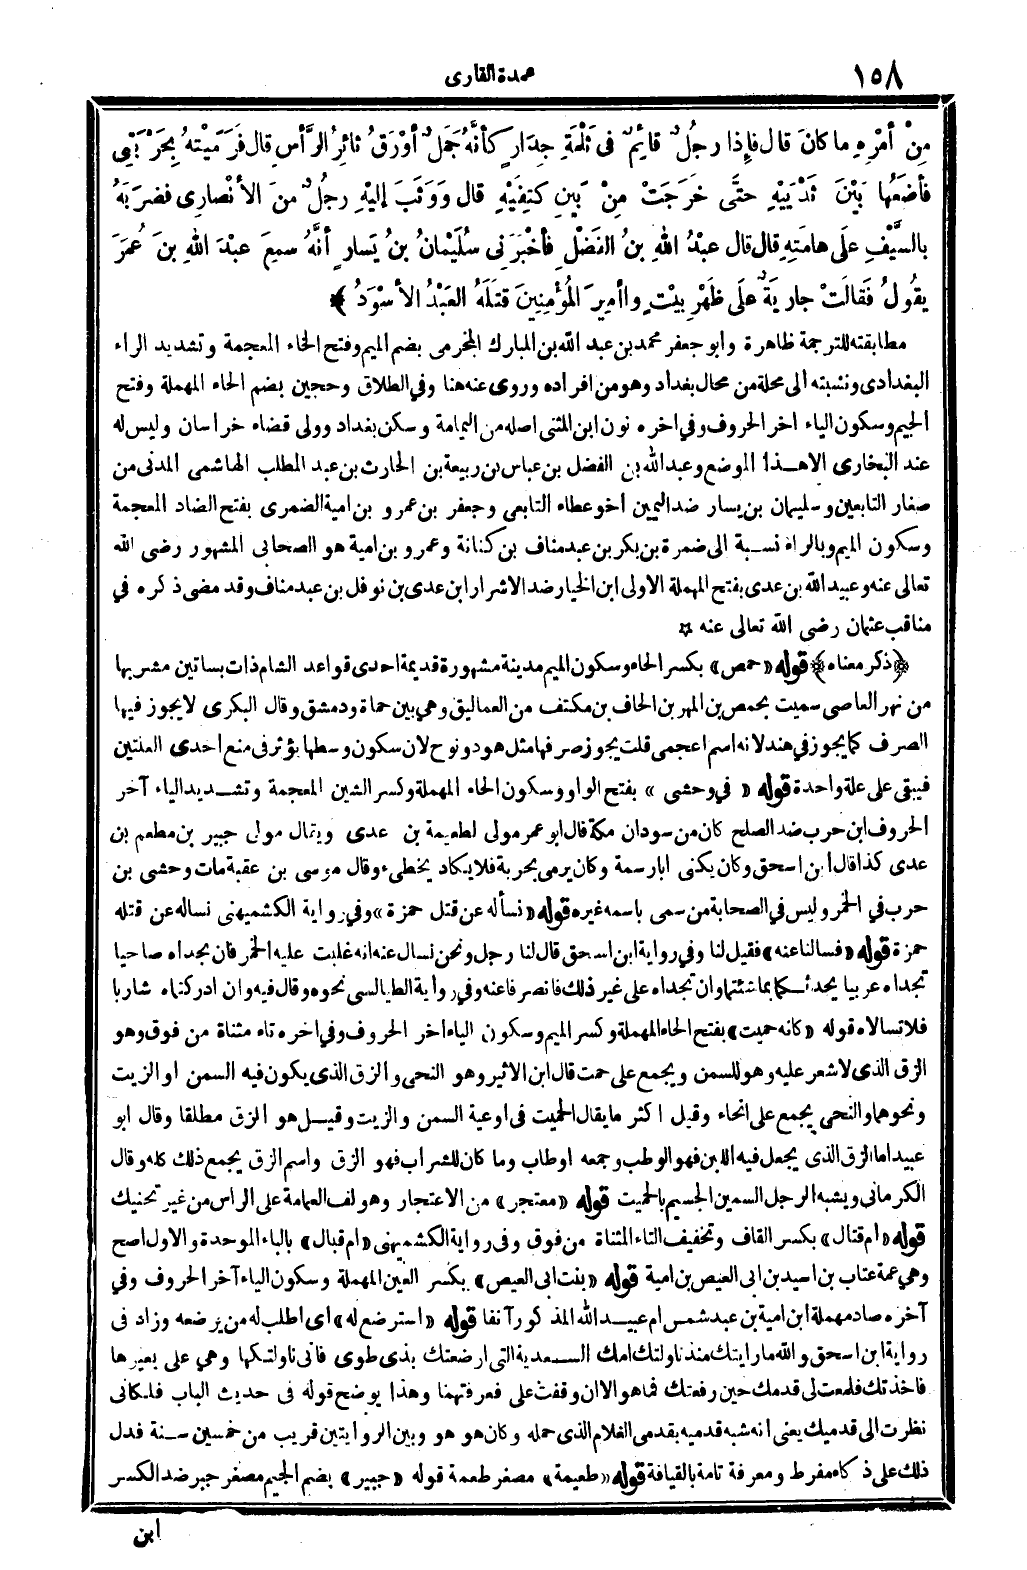 ١٥٨
عمدة القارى
مِنْ أمْرِهِ ما كانَ قال فإِذا رجُلٌ قائِمٌ فى ثَلْمَةِ جِدَارٍ كأنَّهُ جَمَلٌ أوْرَقُ ثائِرُ الرَّأسِ قال فَرَمَيْتُهُ بِحَرْبَتِى
فأضَعُها بَيْنَ ثَدْيَيْهِ حتَّى خَرَجَتْ مِنْ بَينِ كَتِفَيْهِ قال وَوَثَبَ إليْهِ رجُلٌ منَ الأنْصارِى فضرَبَهُ
بالسَّيْفِ علَى هامَتِهِ قال قال عبْدُ اللهِ بنُ الفَضْلِ فأخْبَرَنِى سُلَيْمانُ بنُ يَسارٍ أنَّهُ سمِعَ عبْدَ اللهِ بنَ عُمَرَ
يقُولُ فَقالَتْ جارِيَةٌ علَى ظَهْرِ بيْتٍ وا أمِيرَ المُؤْمِنِينَ قتَلَهُ العَبْدُ الأسْوَدُ ﴾
مطابقته للترجمة ظاهرة وابو جعفر محمد بن عبد الله بن المبارك المخرمى بضم الميم وفتح الخاء المعجمة وتشديد الراء
البغدادى ونسبته الى محلة من محال بغداد وهو من افراده وروى عنه هنا وفي الطلاق وحجين بضم الحاء المهملة وفتح
الجيم وسكون الياء اخر الحروف وفي اخره نون ابن المثنى اصله من اليمامة وسكن بغداد وولى قضاء خراسان وليس له
عند البخارى الا هذا الموضع وعبد الله بن الفضل بن عباس بن ربيعة بن الحارث بن عبد المطلب الهاشمى المدنى من
صغار التابعين وسليمان بن يسار ضد اليمين أخو عطاء التابعى وجعفر بن عمرو بن امية الضمرى بفتح الضاد المعجمة
وسكون الميم وبالراء نسبة الى ضمرة بن بكر بن عبد مناف بن كنانة وعمرو بن امية هو الصحابى المشهور رضى الله
تعالى عنه وعبيد الله بن عدى بفتح المهملة الاولى ابن الخيار ضد الاشرار ابن عدى بن نوفل بن عبد مناف وقد مضى ذكره في
مناقب عثمان رضى الله تعالى عنه ¤
﴿ذكر معناه﴾ قوله «حمص» بكسر الحاء وسكون الميم مدينة مشهورة قديمة احدى قواعد الشام ذات بساتين مشربها
من نهر العاصى سميت بحمص بن المهر بن الحاف بن مكتف من العماليق وهي بين حماة ودمشق وقال البكرى لا يجوز فيها
الصرف كما يجوز في هند لانه اسم اعجمى قلت يجوز صرفها مثل هود ونوح لان سكون وسطها يؤثر فى منع احدى العلتين
فيبقى على علة واحدة قوله «في وحشى» بفتح الواو وسكون الحاء المهملة وكسر الشين المعجمة وتشديد الياء آخر
الحروف ابن حرب ضد الصلح كان من سودان مكة قال ابو عمر مولى لطعيمة بن عدى ويقال مولى جبير بن مطعم بن
عدى كذا قال ابن اسحق وكان يكنى ابا رسمة وكان يرمى بحربة فلا يكاد يخطىء وقال موسى بن عقبة مات وحشى بن
حرب في الخمر وليس في الصحابة من سمى باسمه غيره قوله «نسأله عن قتل حمزة» وفي رواية الكشميهنى نساله عن قتله
حمزة قوله «فسالنا عنه» فقيل لنا وفي رواية ابن اسحق قال لنا رجل ونحن نسال عنه انه غلبت عليه الخمر فان تجداه صاحيا
تجداه عربيا يحدثكما بما شئتما وان تجداه على غير ذلك فانصرفا عنه وفي رواية الطيالسى نحوه وقال فيه وان ادركتماه شاربا
فلا تسالاه قوله «كانه حميت» بفتح الحاء المهملة وكسر الميم وسكون الياء اخر الحروف وفي اخره تاء مثناة من فوق وهو
الزق الذى لا شعر عليه وهو للسمن ويجمع على حمت قال ابن الاثير وهو النحى والزق الذى يكون فيه السمن او الزيت
ونحوهما والنحى يجمع على انحاء وقيل اكثر ما يقال الحميت فى اوعية السمن والزيت وقيل هو الزق مطلقا وقال ابو
عبيد اما الزق الذى يجعل فيه اللبن فهو الوطب وجمعه اوطاب وما كان للشراب فهو الزق واسم الزق يجمع ذلك كله وقال
الكرمانى ويشبه الرجل السمين الجسيم بالحميت قوله «معتجر» من الاعتجار وهو لف العمامة على الراس من غير تحنيك
قوله «ام قتال» بكسر القاف وتخفيف التاء المثناة من فوق وفى رواية الكشميهنى «ام قبال» بالباء الموحدة والاول اصح
وهي عمة عتاب بن اسيد بن ابى العيص بن امية قوله «بنت ابى العيص» بكسر العين المهملة وسكون الياء آخر الحروف وفي
آخره صاد مهملة ابن امية بن عبد شمس ام عبيد الله المذكور آنفا قوله «استرضع له» اى اطلب له من يرضعه وزاد فى
رواية ابن اسحق والله ما رايتك منذ ناولتك امك السعدية التى ارضعتك بذى طوى فانى ناولتكها وهي على بعيرها
فاخذتك فلمعت لى قدمك حين رفعتك فما هو الا ان وقفت على فعرفتهما وهذا يوضح قوله فى حديث الباب فلكانى
نظرت الى قدميك يعنى انه شبه قدميه بقدمى الغلام الذى حمله وكان هو هو وبين الروايتين قريب من خمسين سنة فدل
ذلك على ذكاء مفرط ومعرفة تامة بالقيافة قوله «طعيمة» مصغر طعمة قوله «جبير» بضم الجيم مصغر جبر ضد الكسر
ابن